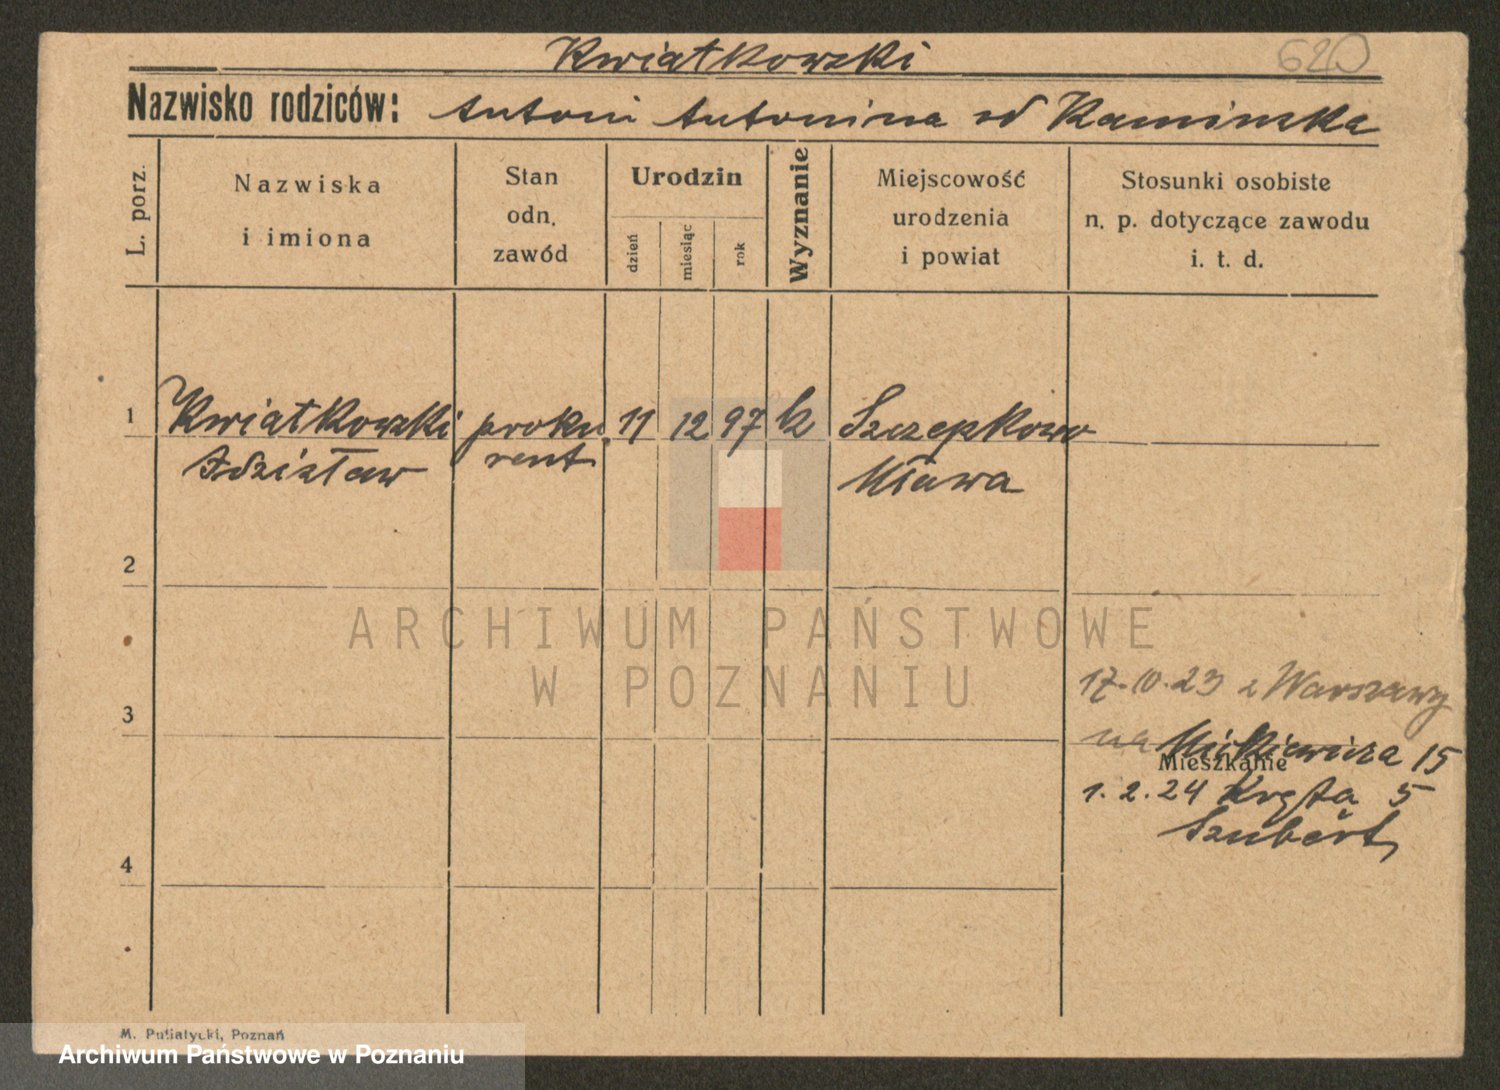 Kwiatkowski
620
Nazwisko rodziców: Antoni Antonina od Kaminska
L. porz.
Nazwiska
i imiona
Stan
odn.
zawód
Urodzin
dzień
miesiąc
rok
Wyznanie
Miejscowość
urodzenia
i powiat
Stosunki osobiste
n. p. dotyczące zawodu
i. t. d.
1 Kwiatkowski proku 11 12 97 k Szczepkowo
Zdzisław rent Mława
2
ARCHIWUM PAŃSTWOWE
W POZNANIU
17.10.23 z Warszawy
3
na Mickiewicza 15
Mieszkanie
1.2.24 Kręta 5
Szubert
4
M. Putiatycki, Poznań
Archiwum Państwowe w Poznaniu